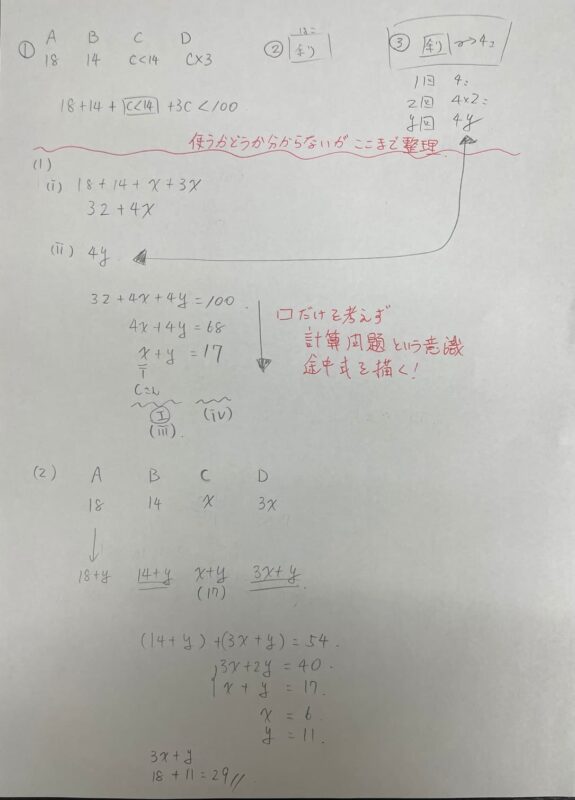 ① A B C D
18 14 C<14 C×3
18+14+ C<14 +3C<100
② 余り
③ 余り → 4コ
1回 4コ
2回 4×2コ
y回 4y
使うかどうか分からないが ここまで整理
(1)
(i) 18+14+x+3x
32+4x
(ii) 4y
32+4x+4y=100
4x+4y=68
x+y=17
I (iv)
(iii)
口だけで考えず
計算問題という意識
途中式を描く!
(2) A B C D
18 14 x 3x
↓
18+y 14+y x+y 3x+y
(17)
(14+y)+(3x+y)=54.
3x+2y=40.
x+y=17.
x=6
y=11.
3x+y
18+11=29